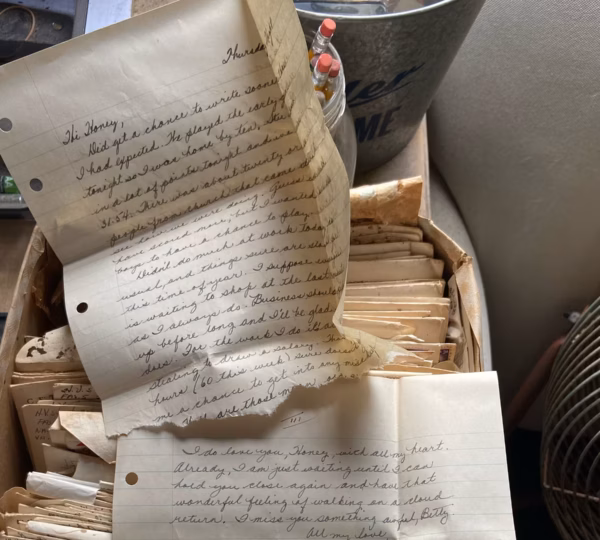 Thursday
Hi Honey,
Did get a chance to write sooner
I had expected. We played the early
tonight so I was home by ten,
in a lot of points tonight and
31-24. There was about twenty
people from church that came
see how we were doing. Guess
have scored more, but I wanted
boys to have a chance to play.
Didn't do much at work today
usual, and things sure are
this time of year. I suppose
is waiting to shop at the last
as I always do. Business should
up before long and I'll be glad
does. For the work I do
stealing to draw a salary. The
hours (60 this week) sure doesn't
me a chance to get into any
are those
III
I do love you, Honey, with all my heart.
Already, I am just waiting until I can
hold you close again and have that
wonderful feeling of walking on a cloud
return. I miss you something awful, Betty.
All my love
ME